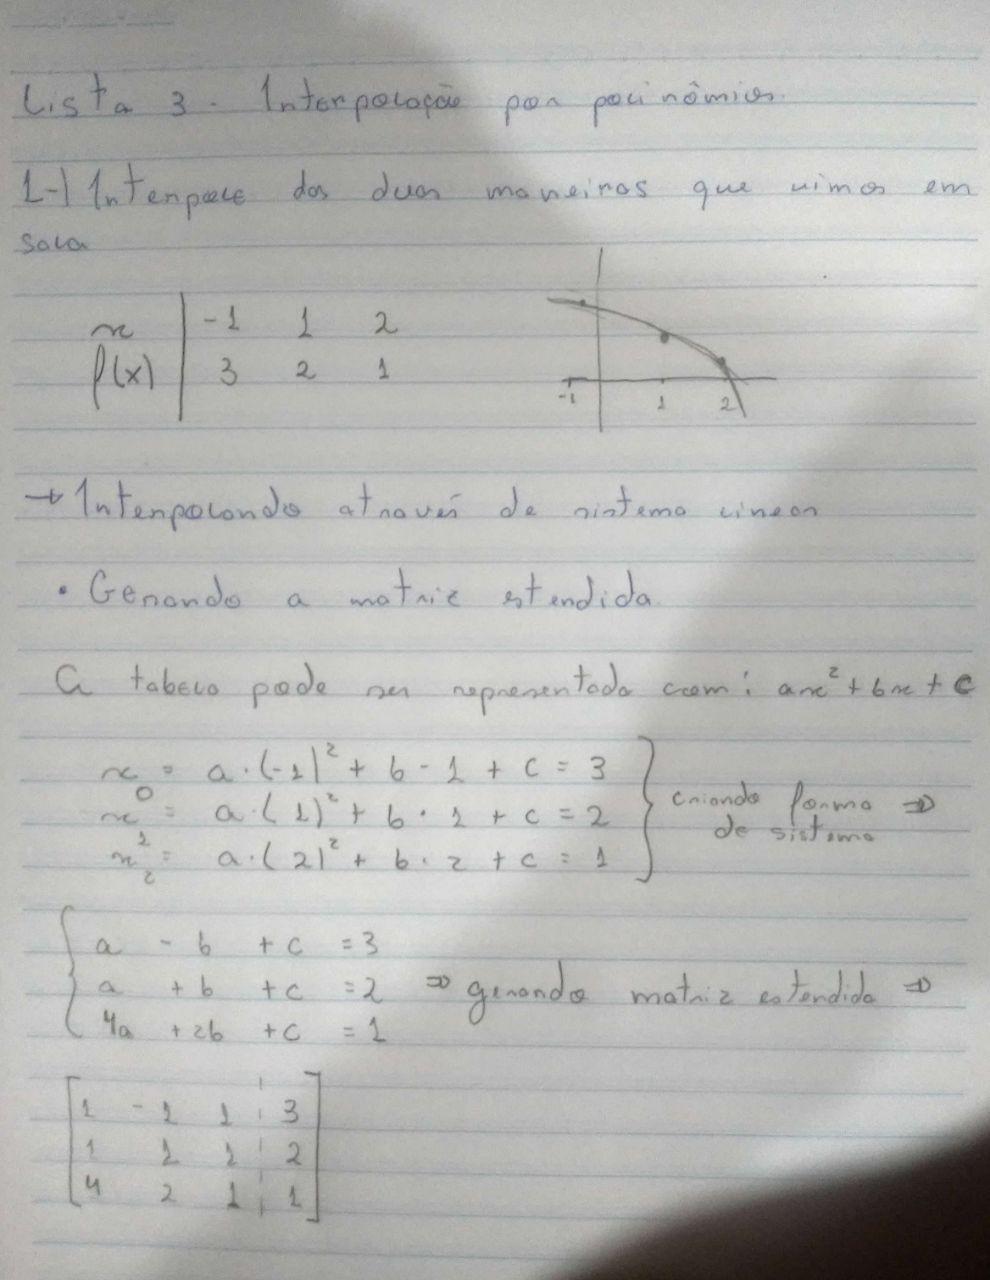 Lista 3 - Interpolação por polinômios.
1-) Interpole das duas maneiras que vimos em
sala
x | -1 1 2
f(x) | 3 2 1
-1 1 2
→ Interpolando através de sistema linear
• Gerando a matriz estendida.
A tabela pode ser representada com: ax² + bx + c
x₀ = a·(-1)² + b - 1 + c = 3
x₁ = a·(1)² + b · 1 + c = 2
x₂ = a·(2)² + b · 2 + c = 1
criando forma ⇒
de sistema
a - b + c = 3
a + b + c = 2 ⇒ gerando matriz estendida ⇒
4a + 2b + c = 1
1 -1 1 | 3
1 1 1 | 2
4 2 1 | 1